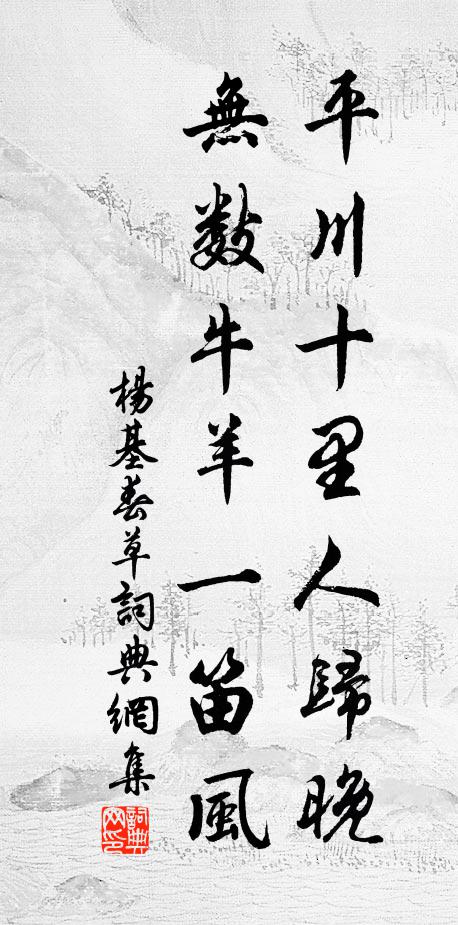 平川十里人歸晚
無數牛羊一笛風
楊基春草詞典網集
詞典網印